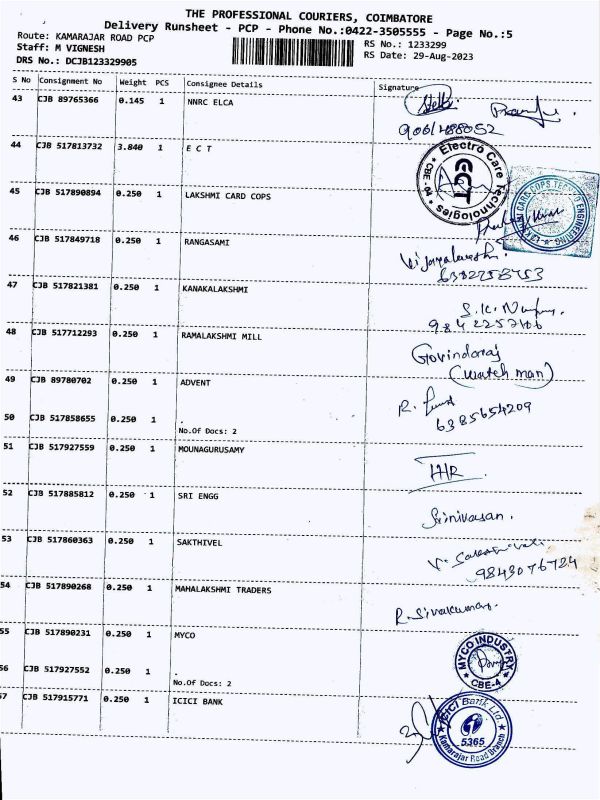 THE PROFESSIONAL COURIERS, COIMBATORE
Delivery Runsheet - PCP - Phone No.:0422-3505555 - Page No.:5
Route: KAMARAJAR ROAD PCP
RS No.: 1233299
Staff: M VIGNESH
RS Date: 29-Aug-2023
DRS No.: DCJB123329905
S No Consignment No Weight PCS Consignee Details Signature
43 CJB 89765366 0.145 1 NNRC ELCA
44 CJB 517813732 3.840 1 E C T
Electro Care Technologies CBE ECT
45 CJB 517890894 0.250 1 LAKSHMI CARD COPS
46 CJB 517849718 0.250 1 RANGASAMI
47 CJB 517821381 0.250 1 KANAKALAKSHMI
48 CJB 517712293 0.250 1 RAMALAKSHMI MILL
Govindaraj
(watch man)
49 CJB 89780702 0.250 1 ADVENT
6385654209
50 CJB 517858655 0.250 1 .
No.Of Docs: 2
51 CJB 517927559 0.250 1 MOUNAGURUSAMY
52 CJB 517885812 0.250 1 SRI ENGG
Srinivasan.
53 CJB 517860363 0.250 1 SAKTHIVEL
9843076724
54 CJB 517890268 0.250 1 MAHALAKSHMI TRADERS
R. Sivakumar.
55 CJB 517890231 0.250 1 MYCO
MYCO INDUSTRY CBE-4
56 CJB 517927552 0.250 1 .
No.Of Docs: 2
57 CJB 517915771 0.250 1 ICICI BANK
ICICI Bank Ltd 5365 Kamarajar Road Branch